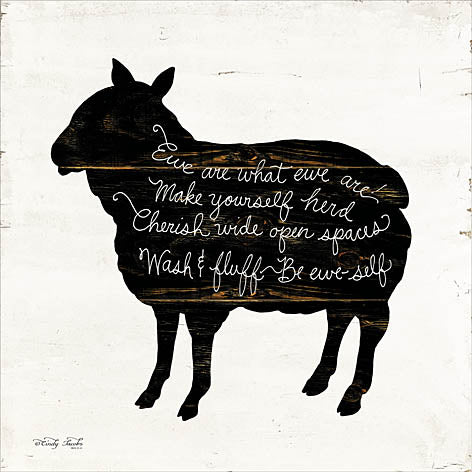 Ewe are what ewe are!
Make yourself herd
Cherish wide open spaces
Wash & fluff~Be ewe-self
©Cindy Jacobs